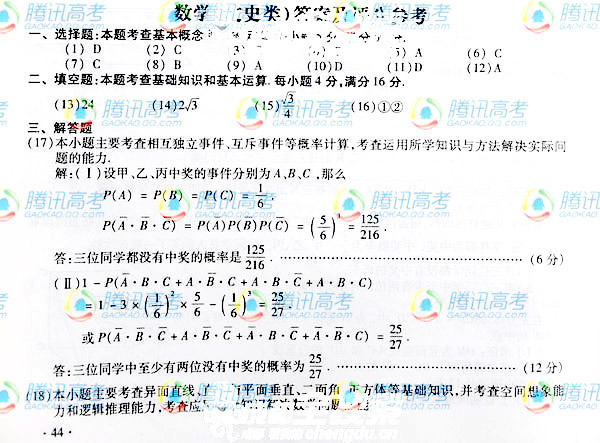 数学 (史类)答案及评分参考
一、选择题:本题考查基本概念
(1) D (2) C (3) (5) A (6) C
(7) C (8) B (9) A (10) D (11) D (12) A
二、填空题:本题考查基础知识和基本运算. 每小题 4 分,满分 16 分.
(13) 24 (14) 2√3 (15) √3/4 (16) ①②
三、解答题
(17) 本小题主要考查相互独立事件、互斥事件等概率计算,考查运用所学知识与方法解决实际问
题的能力.
解:(Ⅰ)设甲、乙、丙中奖的事件分别为 A、B、C ,那么
P(A) = P(B) = P(C) = 1/6 ,
P(A̅ · B̅ · C̅) = P(A̅)P(B̅)P(C̅) = (5/6)³ = 125/216 .
答:三位同学都没有中奖的概率是 125/216 . ………… (6 分)
(Ⅱ) 1 - P(A̅ · B · C + A · B̅ · C + A · B · C̅ + A · B · C)
= 1 - 3 × (1/6)² × 5/6 - (1/6)³ = 25/27 .
或 P(A̅ · B̅ · C̅ + A · B̅ · C̅ + A̅ · B · C̅ + A̅ · B̅ · C) = 25/27 .
答:三位同学中至少有两位没有中奖的概率为 25/27 . ………… (12 分)
(18) 本小题主要考查异面直线、 平面垂直、二面角、正方体等基础知识,并考查空间想象能
力和逻辑推理能力,考查应 数学问题
· 44 ·
腾讯高考
GAOKAO.QQ.COM